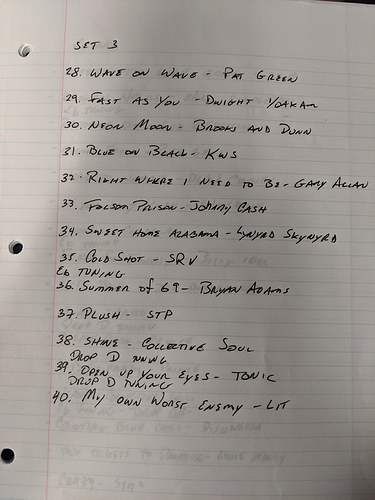 SET 3
28. WAVE ON WAVE - PAT GREEN
29. FAST AS YOU - DWIGHT YOAKAM
30. NEON MOON - BROOKS AND DUNN
31. BLUE ON BLACK - KWS
32. RIGHT WHERE I NEED TO BE - GARY ALLAN
33. FOLSOM PRISON - JOHNNY CASH
34. SWEET HOME ALABAMA - LYNYRD SKYNYRD
35. COLD SHOT - SRV
Eb TUNING
36. SUMMER OF 69 - BRYAN ADAMS
37. PLUSH - STP
38. SHINE - COLLECTIVE SOUL
DROP D TUNING
39. OPEN UP YOUR EYES - TONIC
DROP D TUNING
40. MY OWN WORST ENEMY - LIT